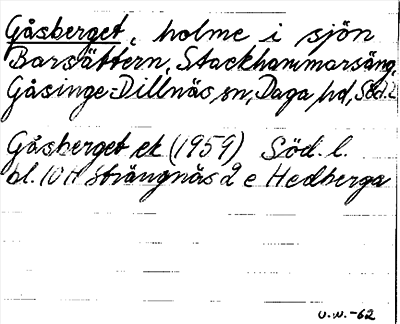 Gåsberget, holme i sjön
Barsättern, Stackhammarsäng,
Gåsinge-Dillnäs sn, Daga hd, Söd.l.
Gåsberget ek (1959) Söd. l.
bl. 10 H Strängnäs d e Hedberga
U.W.-62